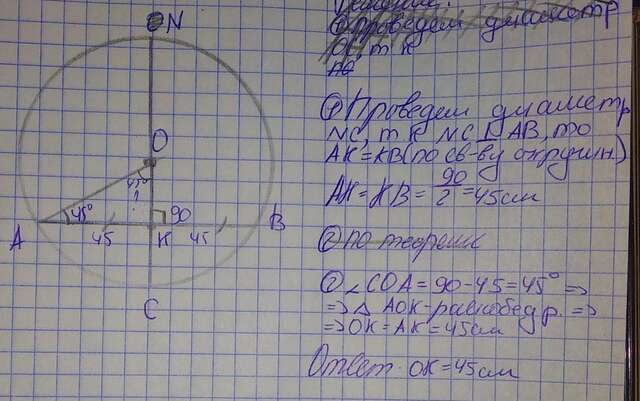 Решение:
① Проведем диаметр
т К
① Проведем диаметр
NC, т К NC ⊥ AB, то
AK = KB (по св-ву окружн.)
AK = KB = 90/2 = 45 см
② по теореме
② ∠COA = 90 - 45 = 45° =>
=> △ AOK - равнобедр. =>
=> OK = AK = 45 см
Ответ: OK = 45 см
N
O
45°
?
45°
90
A
45
K
45
B
C